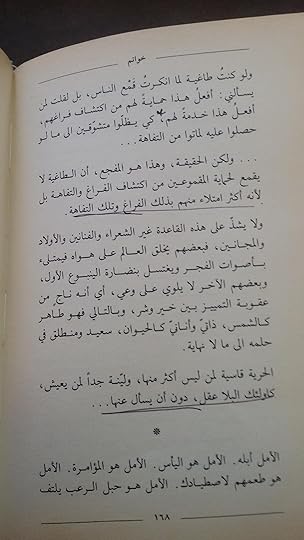 خواتم
ولو كنتُ طاغية لما انكرتُ قَمْع الناس، بل لقلت لمن
يسألني: أفعلُ هذا حمايةً لهم من اكتشاف فراغهم،
أفعلُ هذا خدمةً لهم كي يظلّوا متشوّقين الى ما لو
حصلوا عليه لماتوا من التفاهة.
... ولكن الحقيقة، وهذا هو المفجع، أن الطاغية لا
يقمع لحماية المقموعين من اكتشاف الفراغ والتفاهة بل
لأنه أكثر امتلاء منهم بذلك الفراغ وتلك التفاهة.
ولا يشذّ على هذه القاعدة غير الشعراء والفنانين والأولاد
والمجانين، فبعضهم يخلق العالم على هواه فيمتلىء
بأصوات الفجر ويغتسل بنضارة الينبوع الأول،
وبعضهم الآخر لا يلوي على وعي، أي أنه ناج من
عقوبة التمييز بين خير وشر، وبالتالي فهو طاهر
كالشمس، ذاتيّ وأنانيّ كالحيوان، سعيد ومنطلق في
حلمه الى ما لا نهاية.
الحرية قاسية لمن ليس أكثر منها، وليّنة جداً لمن يعيش،
كأولئك البلا عقل، دون أن يسأل عنها...
*
الأمل أبله. الأمل هو اليأس. الأمل هو المؤامرة. الأمل
هو طعمهم لاصطيادك. الأمل هو حبل الرعب يلتف
١٦٨